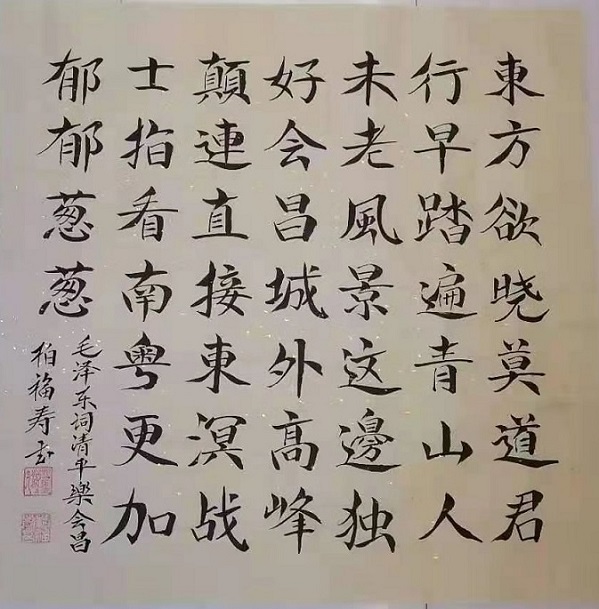 東方欲晓莫道君
行早踏遍青山人
未老風景这邊独
好会昌城外高峰
顛連直接東溟战
士指看南粤更加
郁郁葱葱
毛泽东词清平樂会昌
柏福寿书